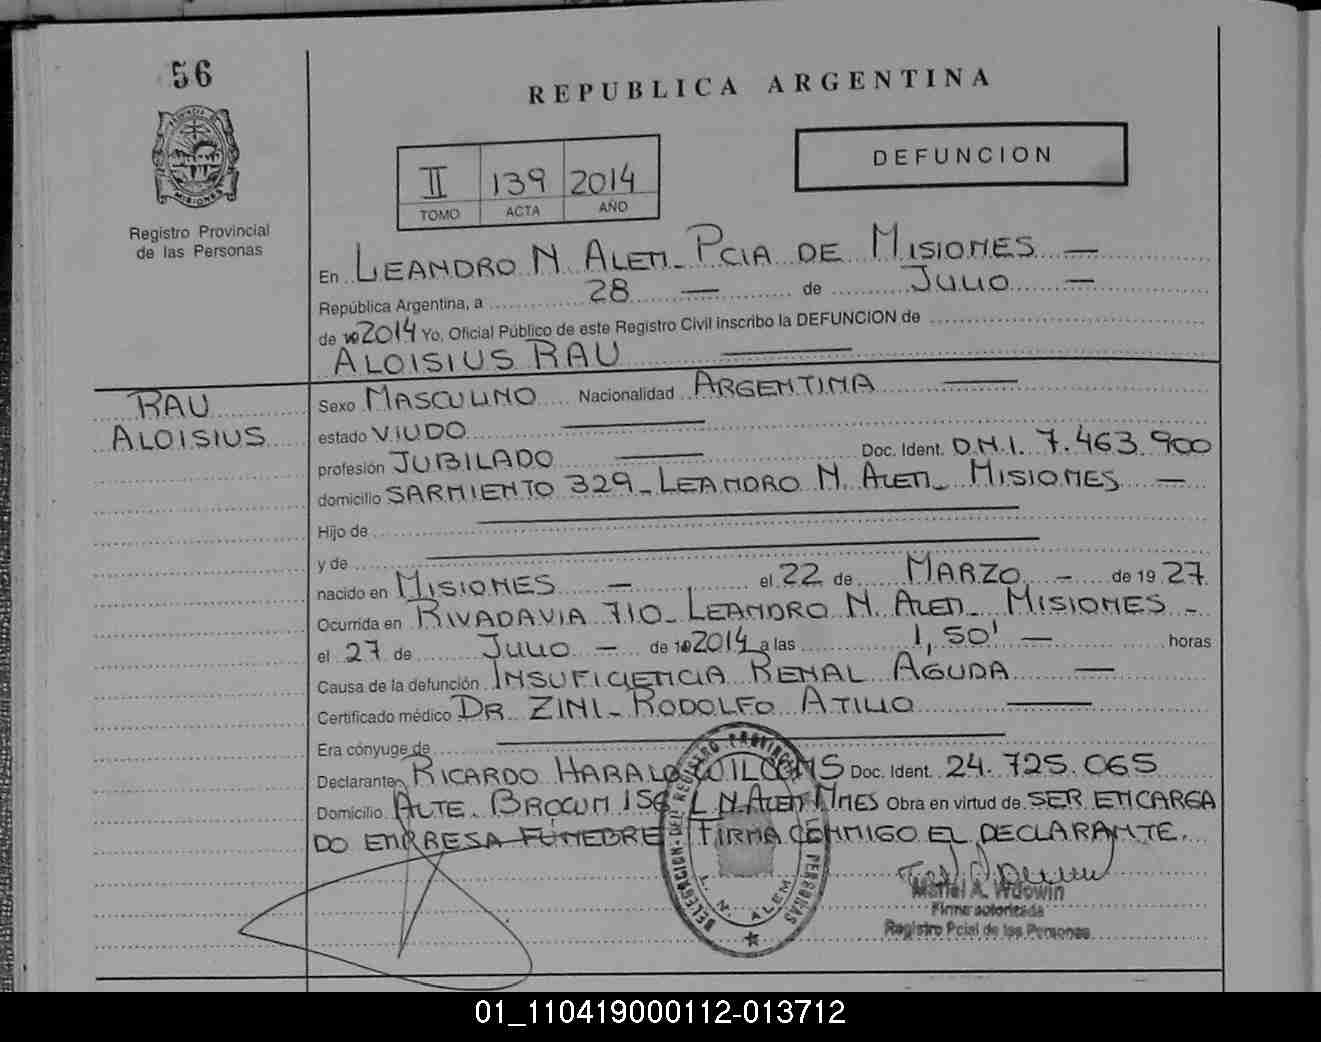 56
REPUBLICA ARGENTINA
Registro Provincial
de las Personas
DEFUNCION
II 139 2014
TOMO ACTA AÑO
En LEANDRO N. ALEM - PCIA DE MISIONES —
República Argentina, a 28 — de JULIO —
de 2014 Yo, Oficial Público de este Registro Civil inscribo la DEFUNCION de
ALOISIUS RAU
RAU
ALOISIUS
Sexo MASCULINO Nacionalidad ARGENTINA
estado VIUDO
profesión JUBILADO Doc. Ident. D.N.I. 7.463.900
domicilio SARMIENTO 329 - LEANDRO N. ALEM - MISIONES —
Hijo de
y de
nacido en MISIONES — el 22 de MARZO - de 1927
Ocurrida en RIVADAVIA 710 - LEANDRO N. ALEM - MISIONES -
el 27 de JULIO — de 2014 a las 1,50' — horas
Causa de la defunción INSUFICIENCIA RENAL AGUDA —
Certificado médico DR ZINI - RODOLFO ATILIO
Era cónyuge de
Declarante RICARDO HARALD Doc. Ident. 24.725.065
Domicilio ALTE. BROWN 156 L.N. ALEM MNES Obra en virtud de SER ENCARGA
DO EMPRESA FUNEBRE FIRMA CONMIGO EL DECLARANTE.
DELEGACION DEL REGISTRO PROVINCIAL DE LAS PERSONAS
L. N. ALEM
A. Wdowin
Firma autorizada
Registro Pcial de las Personas
01_110419000112-013712